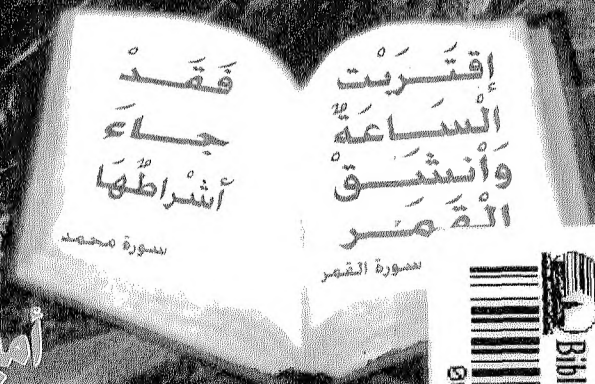 إقتَربَت
الْسَاعَةُ
وَأنشَقْ
الْقَمَر
سورة القمر
فَقَدْ
جاءَ
أشْراطُهَا
سورة محمد
Bibl
0